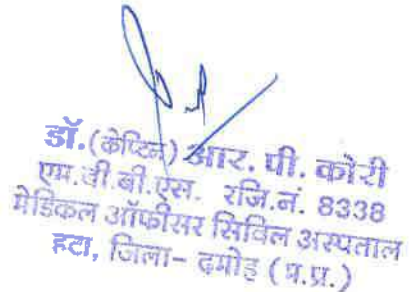 डॉ.(केप्टिन) आर. पी. कोरी
एम.बी.बी.एस. रजि.नं. 8338
मेडिकल ऑफीसर सिविल अस्पताल
हटा, जिला- दमोह (म.प्र.)